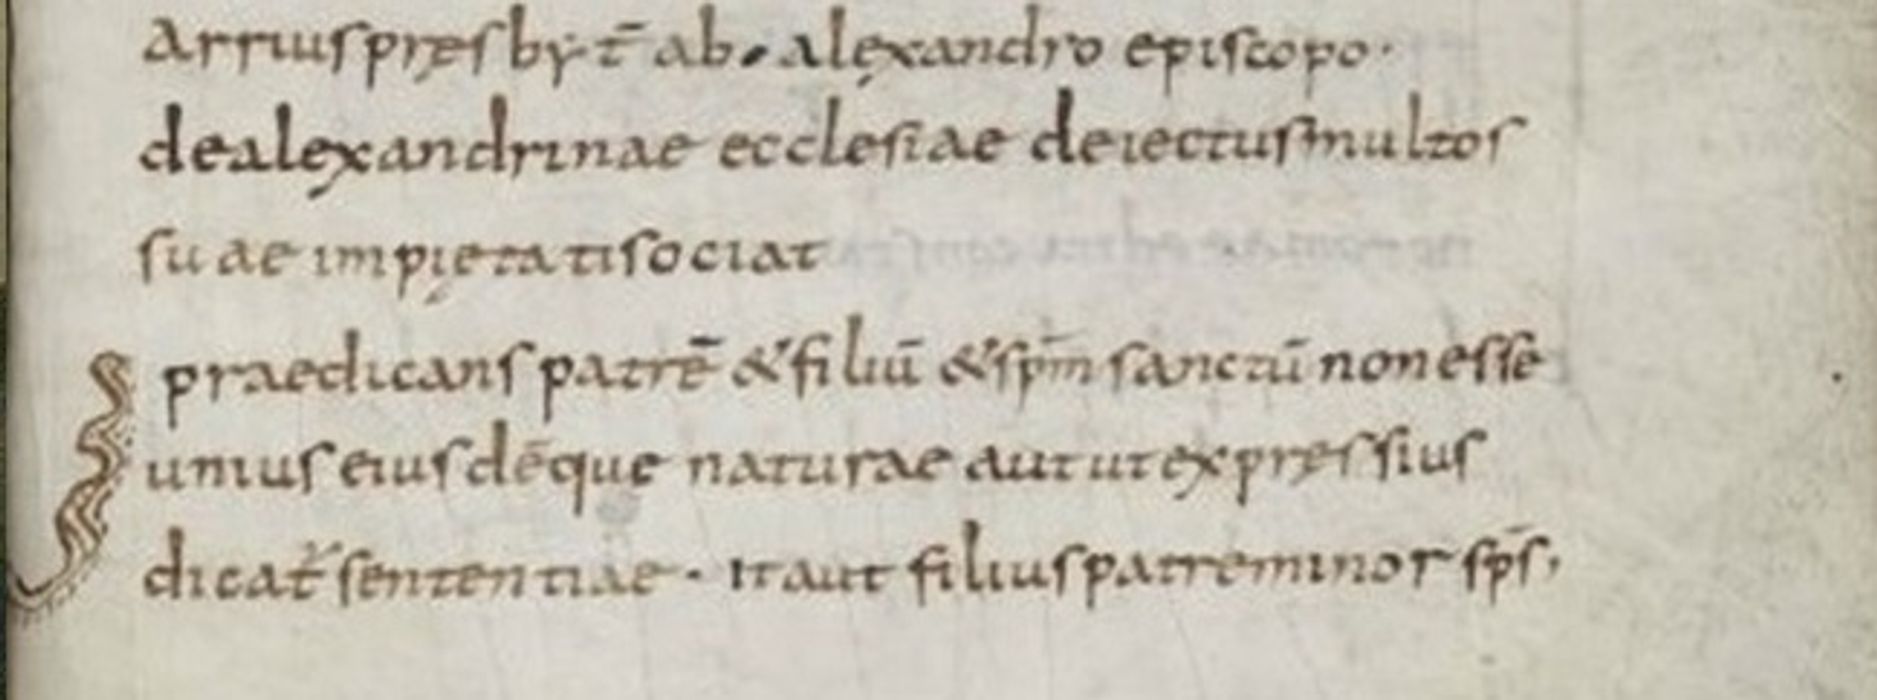 arriuspręsbyt̄ ab· alexandro episcopo·
dealexandrinae ecclesiae deiectusmultos
suae impietatisociat
praedicans patrē &filiū &sp̄m sanctū nonesse
unius eiusdēque naturae aut utexpręssius
dicat᷑ sententiae· Itaut filiuspatreminor sp̄s·